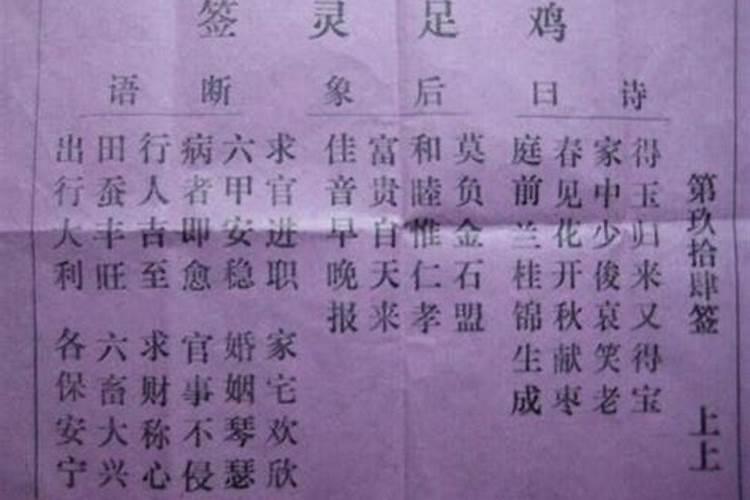 鸡足灵签
第玖拾肆签 上上
诗曰
得玉归来又得宝
家中少俊哀笑老
春见花开秋献枣
庭前兰桂锦生成
后象
莫负金石盟
和睦惟仁孝
富贵自天来
佳音早晚报
断语
求官进职 家宅欢欣
六甲安稳 婚姻琴瑟
病者即愈 官事不侵
行人吉至 求财称心
田蚕丰旺 六畜大兴
出行大利 各保安宁